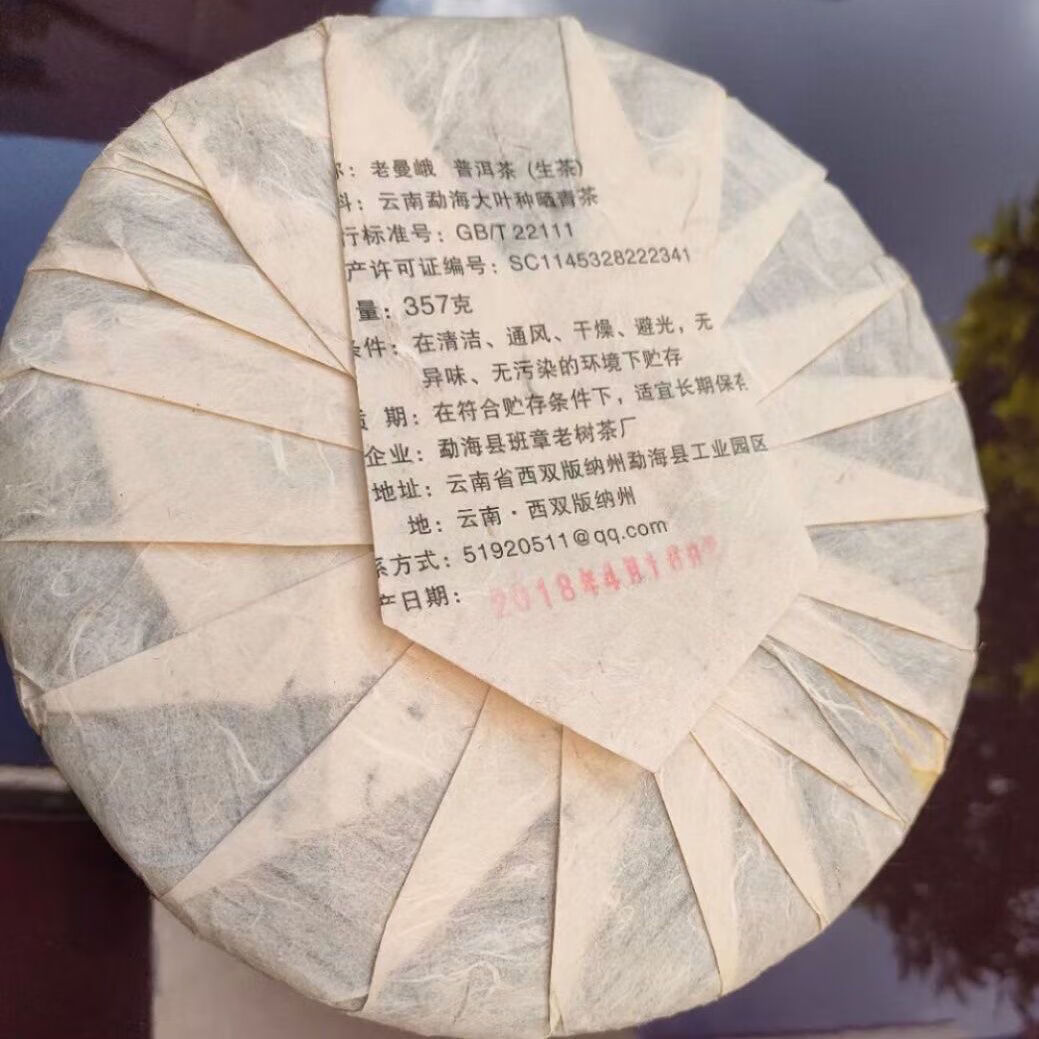 ：老曼峨 普洱茶（生茶）
料：云南勐海大叶种晒青茶
行标准号：GB/T 22111
产许可证编号：SC1145328222341
量：357克
条件：在清洁、通风、干燥、避光，无
异味、无污染的环境下贮存
期：在符合贮存条件下，适宜长期保存
企业：勐海县班章老树茶厂
地址：云南省西双版纳州勐海县工业园区
地：云南·西双版纳州
系方式：51920511@qq.com
产日期：2018年4月16日